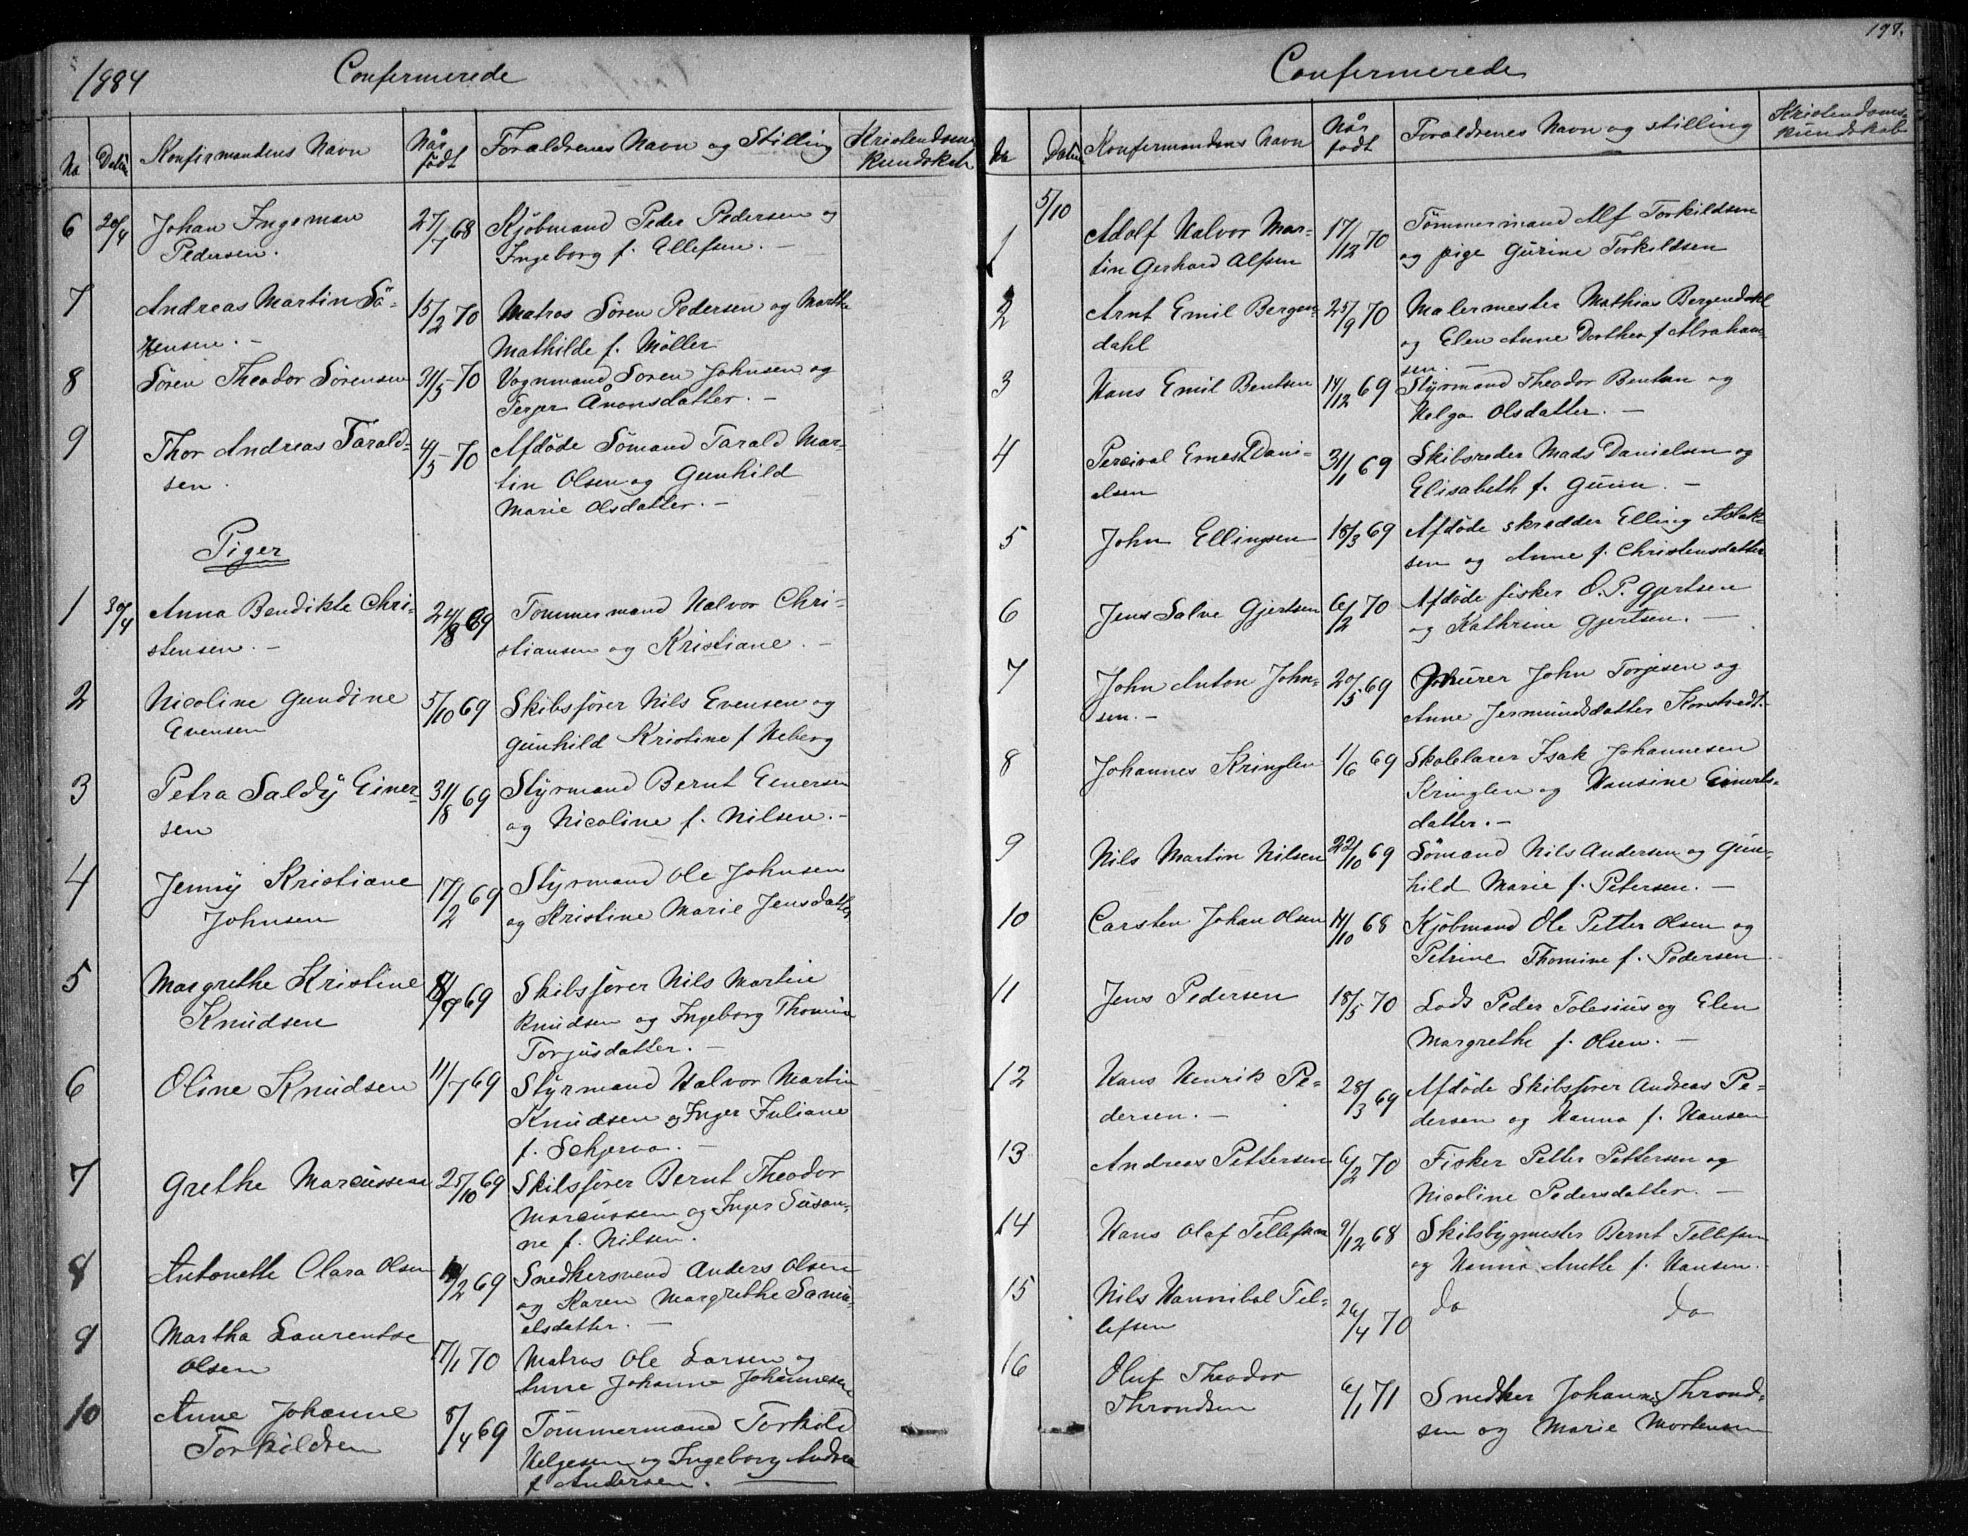 1884 Confermerede
No Datum Konfirmandens Navn Når født Foraldrenes Navn og Stilling Kristendoms Kundskab
6 20/4 Johan Ingeman 27/7 68 Kjöbmand Peder Pedersen og
Pedersen. Ingeborg f. Ellefsen. —
7 Andreas Martin Sö- 15/2 70 Matros Sören Pedersen og Marthe
rensen. — Mathilde f. Möller
8 Sören Theodor Sörensen 31/5 70 Vognmand Soren Johnsen og
Terjer Anonsdatter. —
9 Thor Andreas Tarald- 4/5 70 Afdöde Sömand Tarald Mar-
sen. tin Olsen og Gunhild
Marie Olsdatter. —
Piger
1 30/4 Anna Bendikte Chri- 24/8 69 Tommermand Halvor Chri-
stensen. — stiansen og Kristiane. —
2 Nicoline Gundine 5/10 69 Skibsförer Nils Evensen og
Evensen Gunhild Kristine f Heberg
3 Petra Saldy Einer- 31/8 69 Styrmand Bernt Einersen
sen og Nicoline f. Nilsen. —
4 Jenny Kristiane 17/2 69 Styrmand Ole Johnsen
Johnsen og Kristine Marie Jensdatter
5 Margrethe Kristine 8/9 69 Skibsförer Nils Martin
Knudsen Knudsen og Ingeborg Thomine
Torjusdatter. —
6 Oline Knudsen 11/7 69 Styrmand Halvor Martin
Knudsen og Inger Juliane
f. Schjerva. —
7 Grethe Marcussen 25/10 69 Skibsförer Bernt Theodor
Marcussen og Inger Susan-
ne f. Nilsen.
8 Antonette Clara Olsen /2 69 Snedkersvend Anders Olsen
og Karen Margrethe Samu-
elsdatter. —
9 Martha Laurentse 17/1 70 Matros Ole Larsen og
Olsen Anne Johanne Johannesen
10 Anne Johanne 8/4 69 Tömmermand Torkild
Torkildsen Helgesen og Ingeborg Andrea
f Andersen.
197.
Confermerede
No Datum Konfermandens Navn Når født Foraldrenes Navn og stilling Kristendoms Kundskab
5/10
1 Adolf Halvor Mar- 17/12 70 Tömmermand Alf Torkildsen
tin Gerhard Alfsen og pige Gurine Torkildsen
2 Arnt Emil Bergen- 25/9 70 Malermester Mathias Bergendahl
dahl og Elen Anne Dorthea f Abraham-
sen. —
3 Hans Emil Bentsen 14/12 69 Styrmand Theodor Bentsen og
Helga Olsdatter. —
4 Percival Ernest Dani- 31/1 69 Skibsreder Mads Danielsen og
elsen Elisabeth f. Gunn. —
5 John Ellingsen 18/3 69 Afdöde skrædder Elling Aslak-
sen og Anne f. Christensdatter
6 Jens Salve Gjertsen 6/2 70 Afdöde fisker O. P. Gjertsen
og Kathrine Gjertsen. —
7 John Anton John- 20/5 69 Murer John Torjesen og
sen. — Anne Jermundsdatter Korstvedt.
8 Johannes Kringlen 1/6 69 Skolelarer Isak Johannesen
Kringlen og Hansine Einerts-
datter. —
9 Nils Martin Nilsen 22/10 69 Sömand Nils Andersen og Gun-
hild Marie f. Petersen. —
10 Carsten Johan Olsen 14/10 68 Kjöbmand Ole Petter Olsen og
Petrine Thomine f. Pedersen
11 Jens Pedersen 18/5 70 Lods Peder Tolesius og Elen
Margrethe f. Olsen. —
12 Hans Henrik Pe- 28/3 69 Afdöde Skibsförer Andreas Pe-
dersen. — dersen og Hanna f. Hansen
13 Andreas Pettersen 6/2 70 Fisker Petter Pettersen og
Nicoline Pedersdatter. —
14 Hans Olaf Tellefsen 9/12 68 Skibsbygmester Bernt Tellefsen
og Hanna Anette f. Hansen.
15 Nils Hannibal Tel- 26/4 70 do do
lefsen
16 Oluf Theodor 6/1 71 Snedker Johannes Thrond-
Throndsen sen og Marie Mortensen